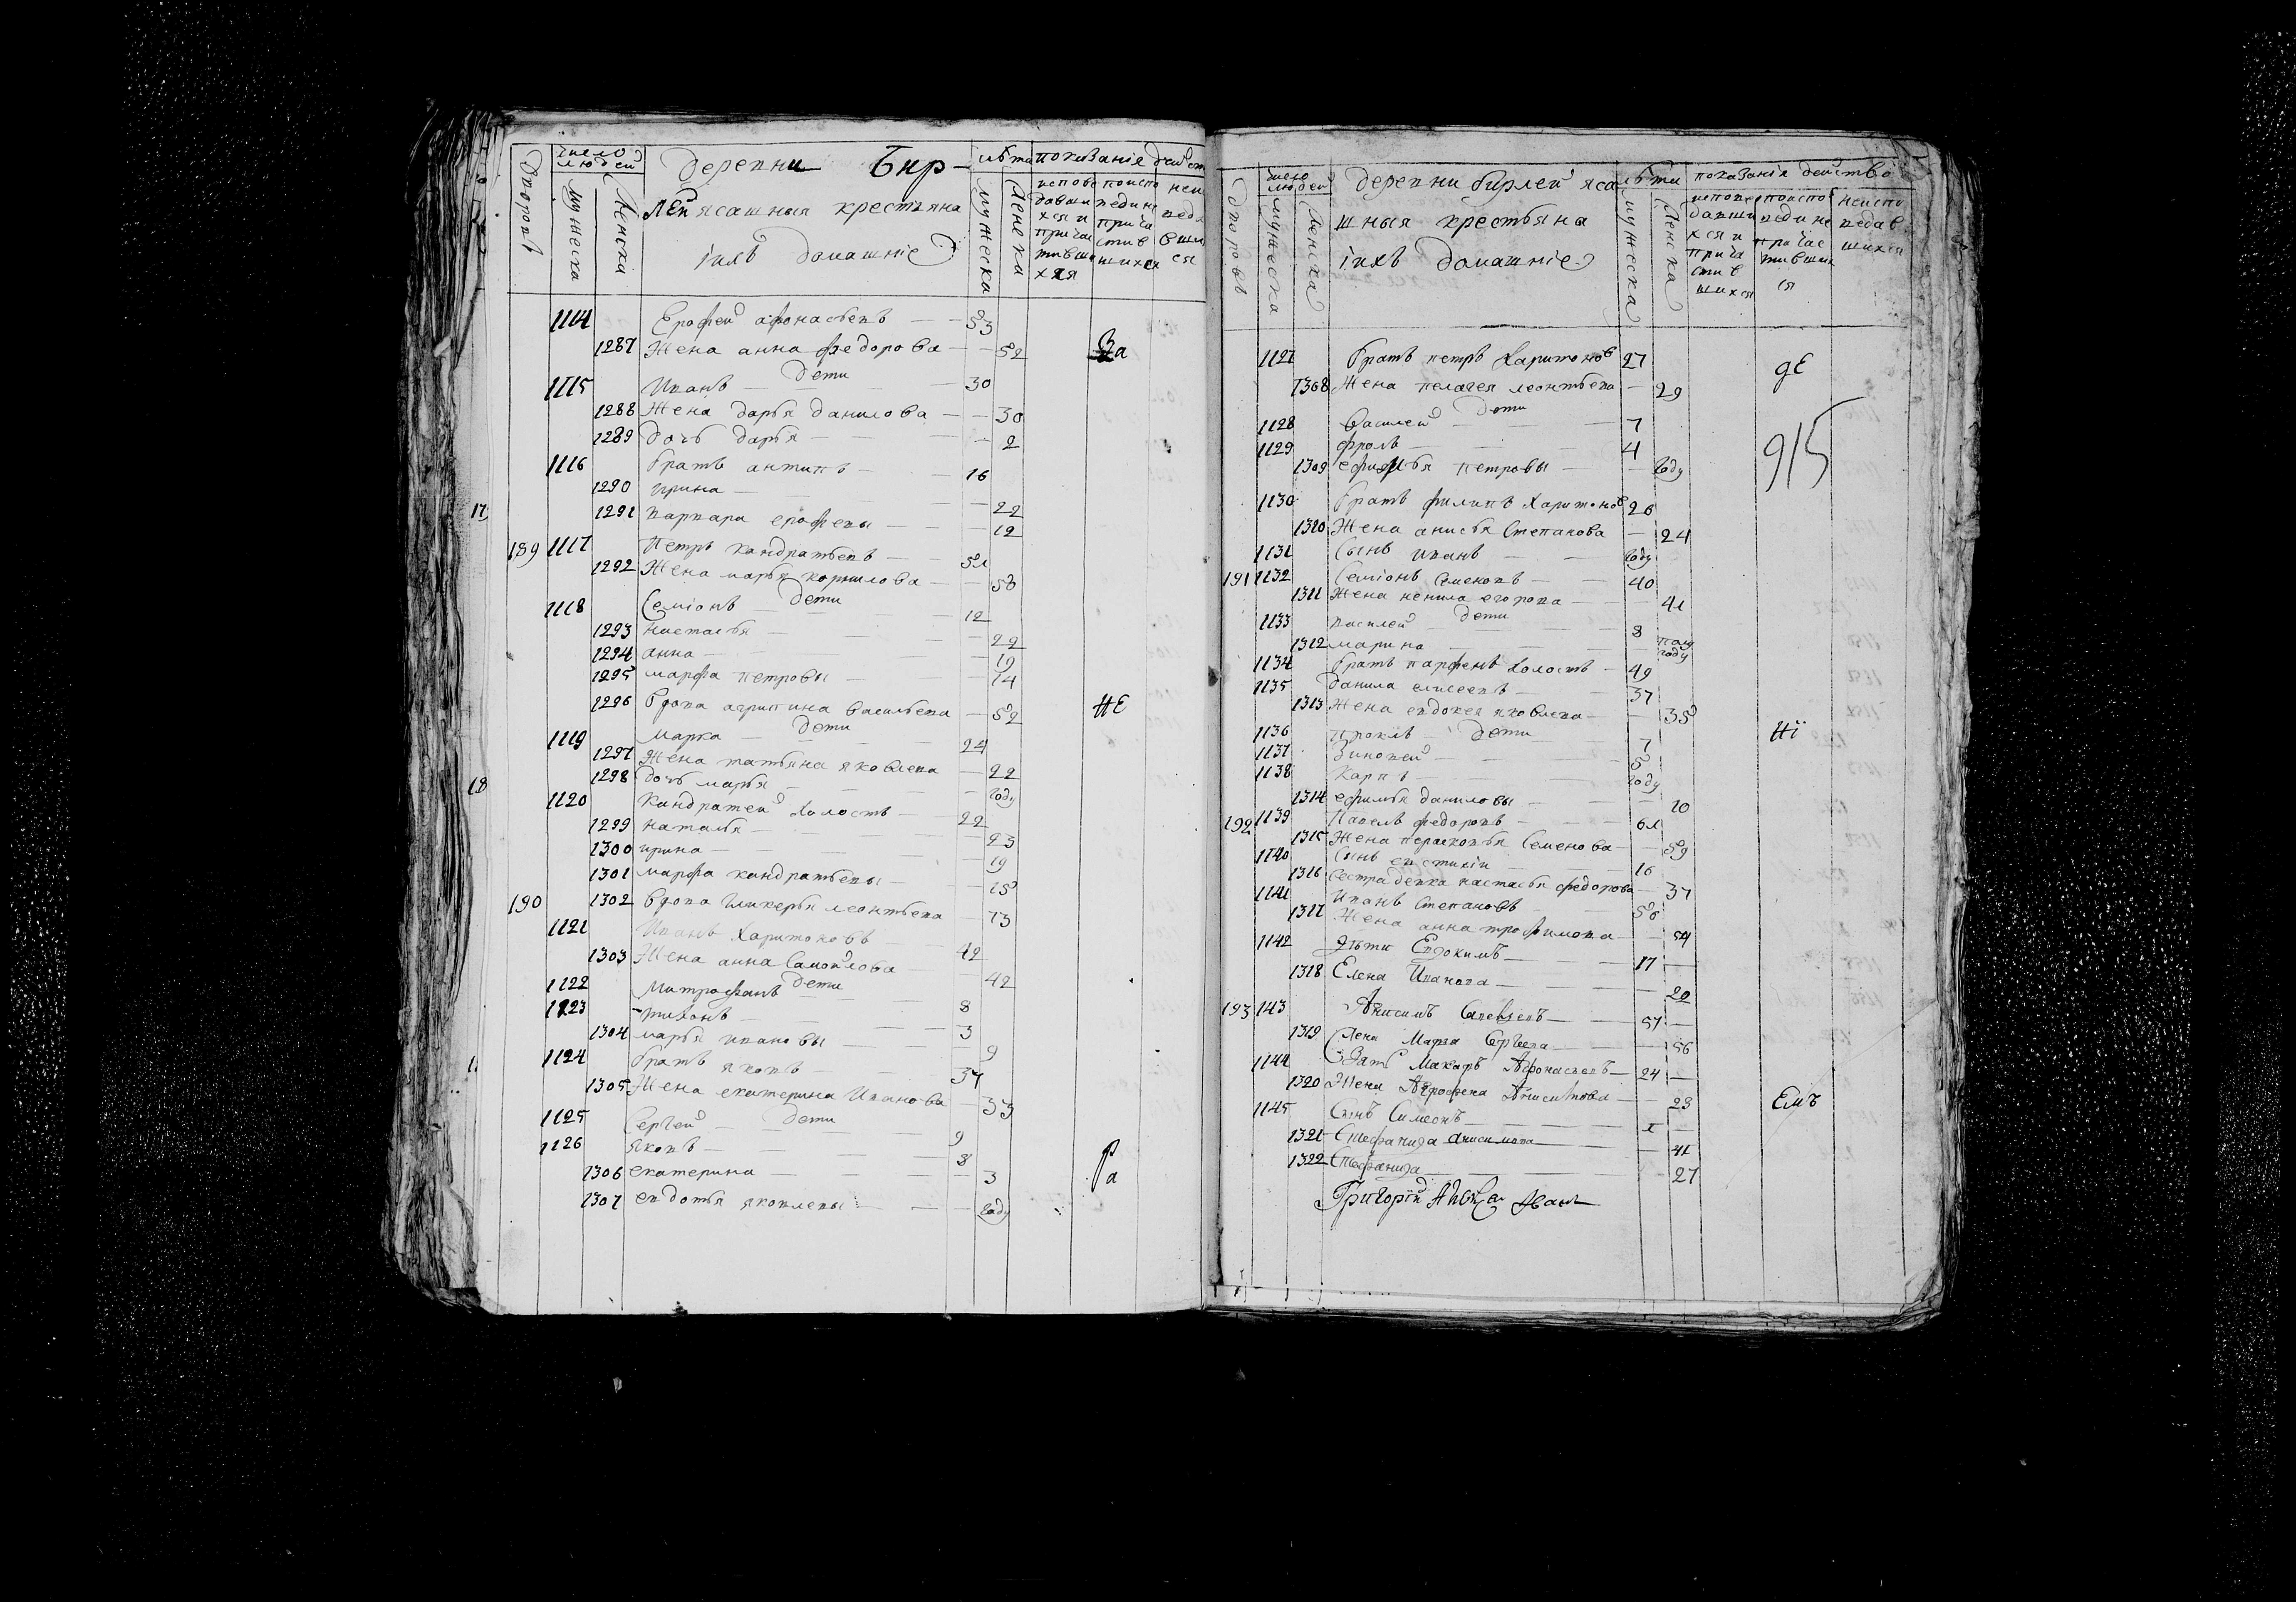 дворовъ число людей деревни Бир- лѣта показаніе дѣйст
мужеска женска мужеска женска
лей ясашныя крестьяна
іихъ домашніе
испове давши хся и причас тивши хся
поиспо веди не прича стив шихся
неи веда вши ся
1114 Ерофей афонасьевъ 53
1287 Жена анна федорова 52 За
дети
1115 Иванъ 30
1288 Жена дарья данилова 30
1289 дочь дарья 2
1116 братъ антипъ 16
1290 ирина 22
1291 варвара ерофевы 12
17
189 1117 Петръ кандратьевъ 51
1292 Жена марья корнилова 50
дети
1118 Семіонъ 12
1293 настасья 22
1294 анна 19
1295 марфа петровы 14
1296 вдова агрипина васильева 52 НЕ
дети
1119 марка 24
1297 Жена татьяна яковлева 22
1298 дочь марья году
18
1120 Кандратей холостъ 22
1299 наталья 23
1300 ирина 19
1301 марфа кандратьевы 15
190 1302 вдова гликерья леонтьева 73
1121 Иванъ харитоновъ 42
1303 Жена анна Самойлова 42
дети
1122 Митрофанъ 8
1123 тихонъ 3
1304 марья ивановы 9
1124 братъ яковъ 37
1305 Жена екатерина Иванова 33
дети
1125 Сергей 9
1126 яковъ 8
1306 екатерина 3 Ра
1307 евдотья яковлевы году
дворовъ число людей деревни бирлей яса лѣта показанія действо
мужеска женска мужеска женска
шныя крестьяна
іихъ домашніе
испове давши хся и прича стив шихся
поиспо веди не причас тивших ся
неиспо ведав шихся
1127 братъ петръ харитоновъ 27 дЕ
1308 Жена пелагея леонтьева 29
дети
1128 василей 7
1129 фролъ 4
915
1309 ефимья петровы году
1130 братъ филипъ харитоновъ 26
1310 Жена анисья Степанова 24
1131 Сынъ иванъ году
191 1132 Семіонъ Семеновъ 40
1311 Жена ненила егорова 41
дети
1133 василей 8
1312 марина полу году
1134 братъ парфенъ холостъ 49
1135 данила елисеевъ 37
1313 Жена евдокея яковлева 35
1136 проклъ дети 7 Ні
1137 Зиновей 5
1138 Карпъ году
1314 ефимья даниловы 10
192 1139 Павелъ федоровъ 61
1315 Жена перасковья Семенова 59
1140 Сынъ евстигій 16
1316 Сестра девка настасья федорова 37
1141 Иванъ Степановъ 56
1317 Жена анна трофимова 54
1142 дѣти Евдокимъ 17
1318 Елена Иванова 20
193 143 Анисимъ 57
1319 Жена Марфа Сергеева 56
1144 Зять Макаръ Афонасьевъ 24
1320 Жена Аграфена Анисимова 23 Емъ
1145 Сынъ Симеонъ 1
1321 Стефанида анисимова 41
1322 Стефанида 27
Григорій